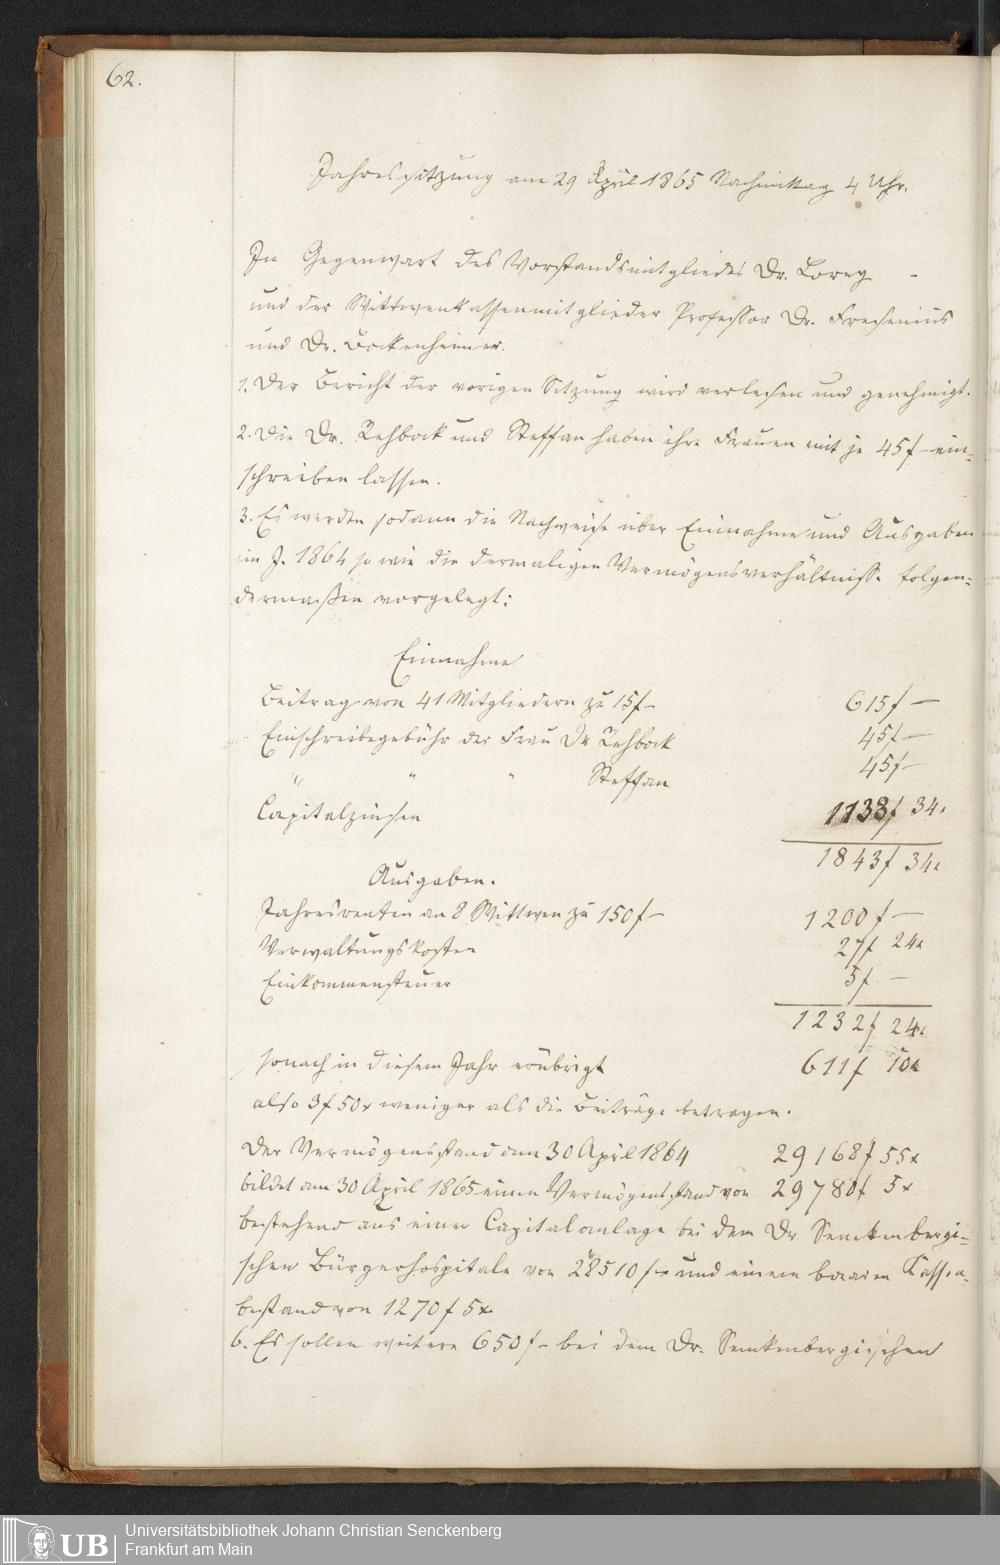 62.
Jahressitzung am 29 April 1865 Nachmittag 4 Uhr.
In Gegenwart des Vorstandsmitgliedes Dr. Lorey -
und der Wittwenkassenmitglieder Professor Dr. Fresenius
und Dr. Bockenheimer.
1. Der Bericht der vorigen Sitzung wird verlesen und genehmigt.
2. Die Dr. Rehbock und Steffan haben ihre Frauen mit je 45f - ein=
schreiben lassen.
3. Es werden sodann die Nachweise über Einnahme und Ausgaben
im J. 1864 so wie die dermaligen Vermögensverhältnisse folgen=
dermaßen vorgelegt:
Einnahme
Beitrag von 41 Mitgliedern zu 15f - 615f —
Einschreibegebühr der Frau Dr Rehbock 45f —
" " " Steffan 45f —
Capitalzinsen 1138f 34x
1843f 34x
Ausgaben.
Jahresrenten an 8 Wittwen zu 150f - 1200f —
Verwaltungskosten 27f 24x
Einkommensteuer 5f —
1232f 24x
sonach in diesem Jahr erübrigt 611f 10x
also 3f 50x weniger als die Beiträge betragen.
Der Vermögensstand am 30 April 1864 29168f 55x
bildet am 30 April 1865 einen Vermögensstand von 29780f 5x
bestehend aus einer Capitalanlage bei dem Dr Senckenbergi=
schen Bürgerhospitale von 28510f - und einem baaren Kassen=
bestand von 1270f 5x
6. Es sollen weitere 650f - bei dem Dr. Senkenbergischen
UB
Universitätsbibliothek Johann Christian Senckenberg
Frankfurt am Main